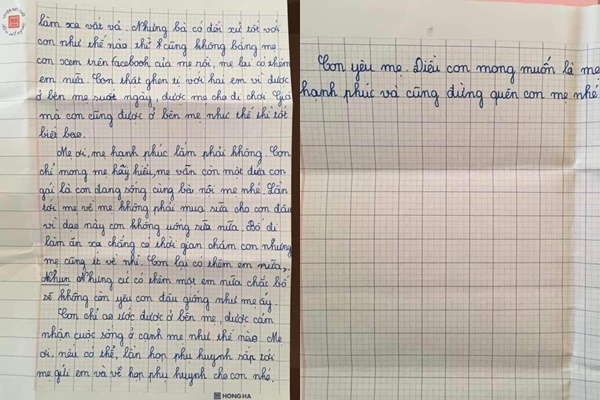 làm xa vất vả. Nhưng bà có đối xử tốt với
con như thế nào thì cũng không bằng mẹ.
con xem trên facebook của mẹ nói, mẹ lại có thêm
em nữa. Con thật ghen tị với hai em vì được
ở bên mẹ suốt ngày, được mẹ cho đi chơi. Giá
mà con cũng được ở bên mẹ như thế thì tốt
biết bao.
Mẹ ơi, mẹ hạnh phúc lắm phải không. Con
chỉ mong mẹ hãy hiểu, mẹ vẫn còn một đứa con
gái là con đang sống cùng bà nội mẹ nhé. Lần
tới mẹ về mẹ không phải mua sữa cho con đâu
vì dạo này con không uống sữa nữa. Bố đi
làm ăn xa chẳng có thời gian chăm con nhưng
mẹ cũng ít về nhỉ. Con lại có thêm em nữa,
Nhưn Nhưng cứ có thêm một em nữa chắc bố
sẽ không còn yêu con đâu giống như mẹ ấy.
Con chỉ ao ước được ở bên mẹ, được cảm
nhận cuộc sống ở cạnh mẹ như thế nào. Mẹ
ơi, nếu có thể, lần họp phụ huynh sắp tới
mẹ gửi em và về họp phụ huynh cho con nhé.
HONG HA
Con yêu mẹ. Điều con mong muốn là mẹ
hạnh phúc và cũng đừng quên con mẹ nhé